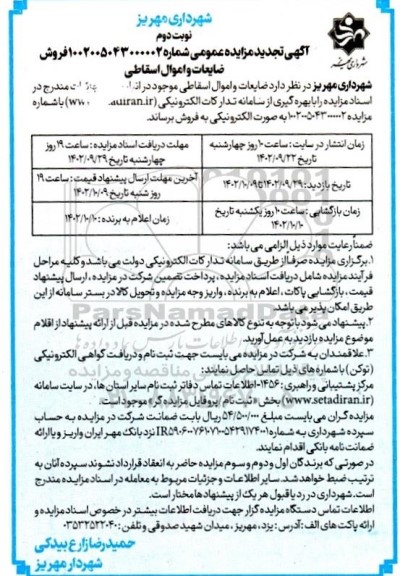 شهرداری مهریز
نوبت دوم
آگهی تجدید مزایده عمومی شماره ۱۰۰۲۰۰۵۰۴۳۰۰۰۰۰۲ فروش
ضایعات و اموال اسقاطی
شهرداری مهریز
شهرداری مهریز در نظر دارد ضایعات و اموال اسقاطی موجود در مندرج در
اسناد مزایده را با بهره گیری از سامانه تدارکات الکترونیکی با شماره
مزایده ۱۰۰۲۰۰۵۰۴۳۰۰۰۰۰۲ به صورت الکترونیکی به فروش برساند.
زمان انتشار در سایت: ساعت ۱۰ روز چهارشنبه تاریخ ۱۴۰۲/۰۹/۲۲
مهلت دریافت اسناد مزایده: ساعت ۱۹ روز چهارشنبه تاریخ ۱۴۰۲/۰۹/۲۹
تاریخ بازدید: ۱۴۰۲/۰۹/۲۹ تا ۱۴۰۲/۱۰/۰۹
آخرین مهلت ارسال پیشنهاد قیمت: ساعت ۱۹ روز شنبه تاریخ ۱۴۰۲/۱۰/۰۹
زمان بازگشایی: ساعت ۱۰ روز یکشنبه تاریخ ۱۴۰۲/۱۰/۱۰
زمان اعلام به برنده: ۱۴۰۲/۱۰/۱۰
ضمناً رعایت موارد ذیل الزامی می باشد:
۱. برگزاری مزایده صرفا از طریق سامانه تدارکات الکترونیکی دولت می باشد و کلیه مراحل
فرآیند مزایده شامل دریافت اسناد مزایده، پرداخت تضمین شرکت در مزایده، ارسال پیشنهاد
قیمت، بازگشایی پاکات، اعلام به برنده، واریز وجه مزایده و تحویل کالا در بستر سامانه از این
طریق امکان پذیر می باشد.
۲. پیشنهاد می شود با توجه به تنوع کالاهای مطرح شده در مزایده قبل از ارائه پیشنهاد از اقلام
موضوع مزایده بازدید به عمل آورید.
۳. علاقمندان به شرکت در مزایده می بایست جهت ثبت نام و دریافت گواهی الکترونیکی
(توکن) با شماره های ذیل تماس حاصل نمایند:
مرکز پشتیبانی و راهبری: ۱۴۵۶- اطلاعات تماس دفاتر ثبت نام سایر استان ها، در سایت سامانه
(www.setadiran.ir) بخش «ثبت نام / پروفایل مزایده گر» موجود است.
مزایده گران می بایست مبلغ ۵۴/۵۰۰/۰۰۰ ریال بابت ضمانت شرکت در مزایده به حساب
سپرده شهرداری به شماره نزد بانک مهر ایران واریز و یا ارائه
ضمانت نامه بانکی اقدام نمایند.
در صورتی که برندگان اول و دوم و سوم مزایده حاضر به انعقاد قرارداد نشوند سپرده آنان به
ترتیب ضبط خواهد شد. سایر اطلاعات و جزئیات مربوط به معامله در اسناد مزایده مندرج
است. شهرداری در رد یا قبول هر یک از پیشنهادها مختار است.
اطلاعات تماس دستگاه مزایده گزار جهت دریافت اطلاعات بیشتر در خصوص اسناد مزایده و
ارائه پاکت های الف: آدرس: یزد، مهریز، میدان شهید صدوقی و تلفن: ۰۳۵۳۲۵۲۲۰۴۰
حمیدرضا زارع بیدکی
شهردار مهریز